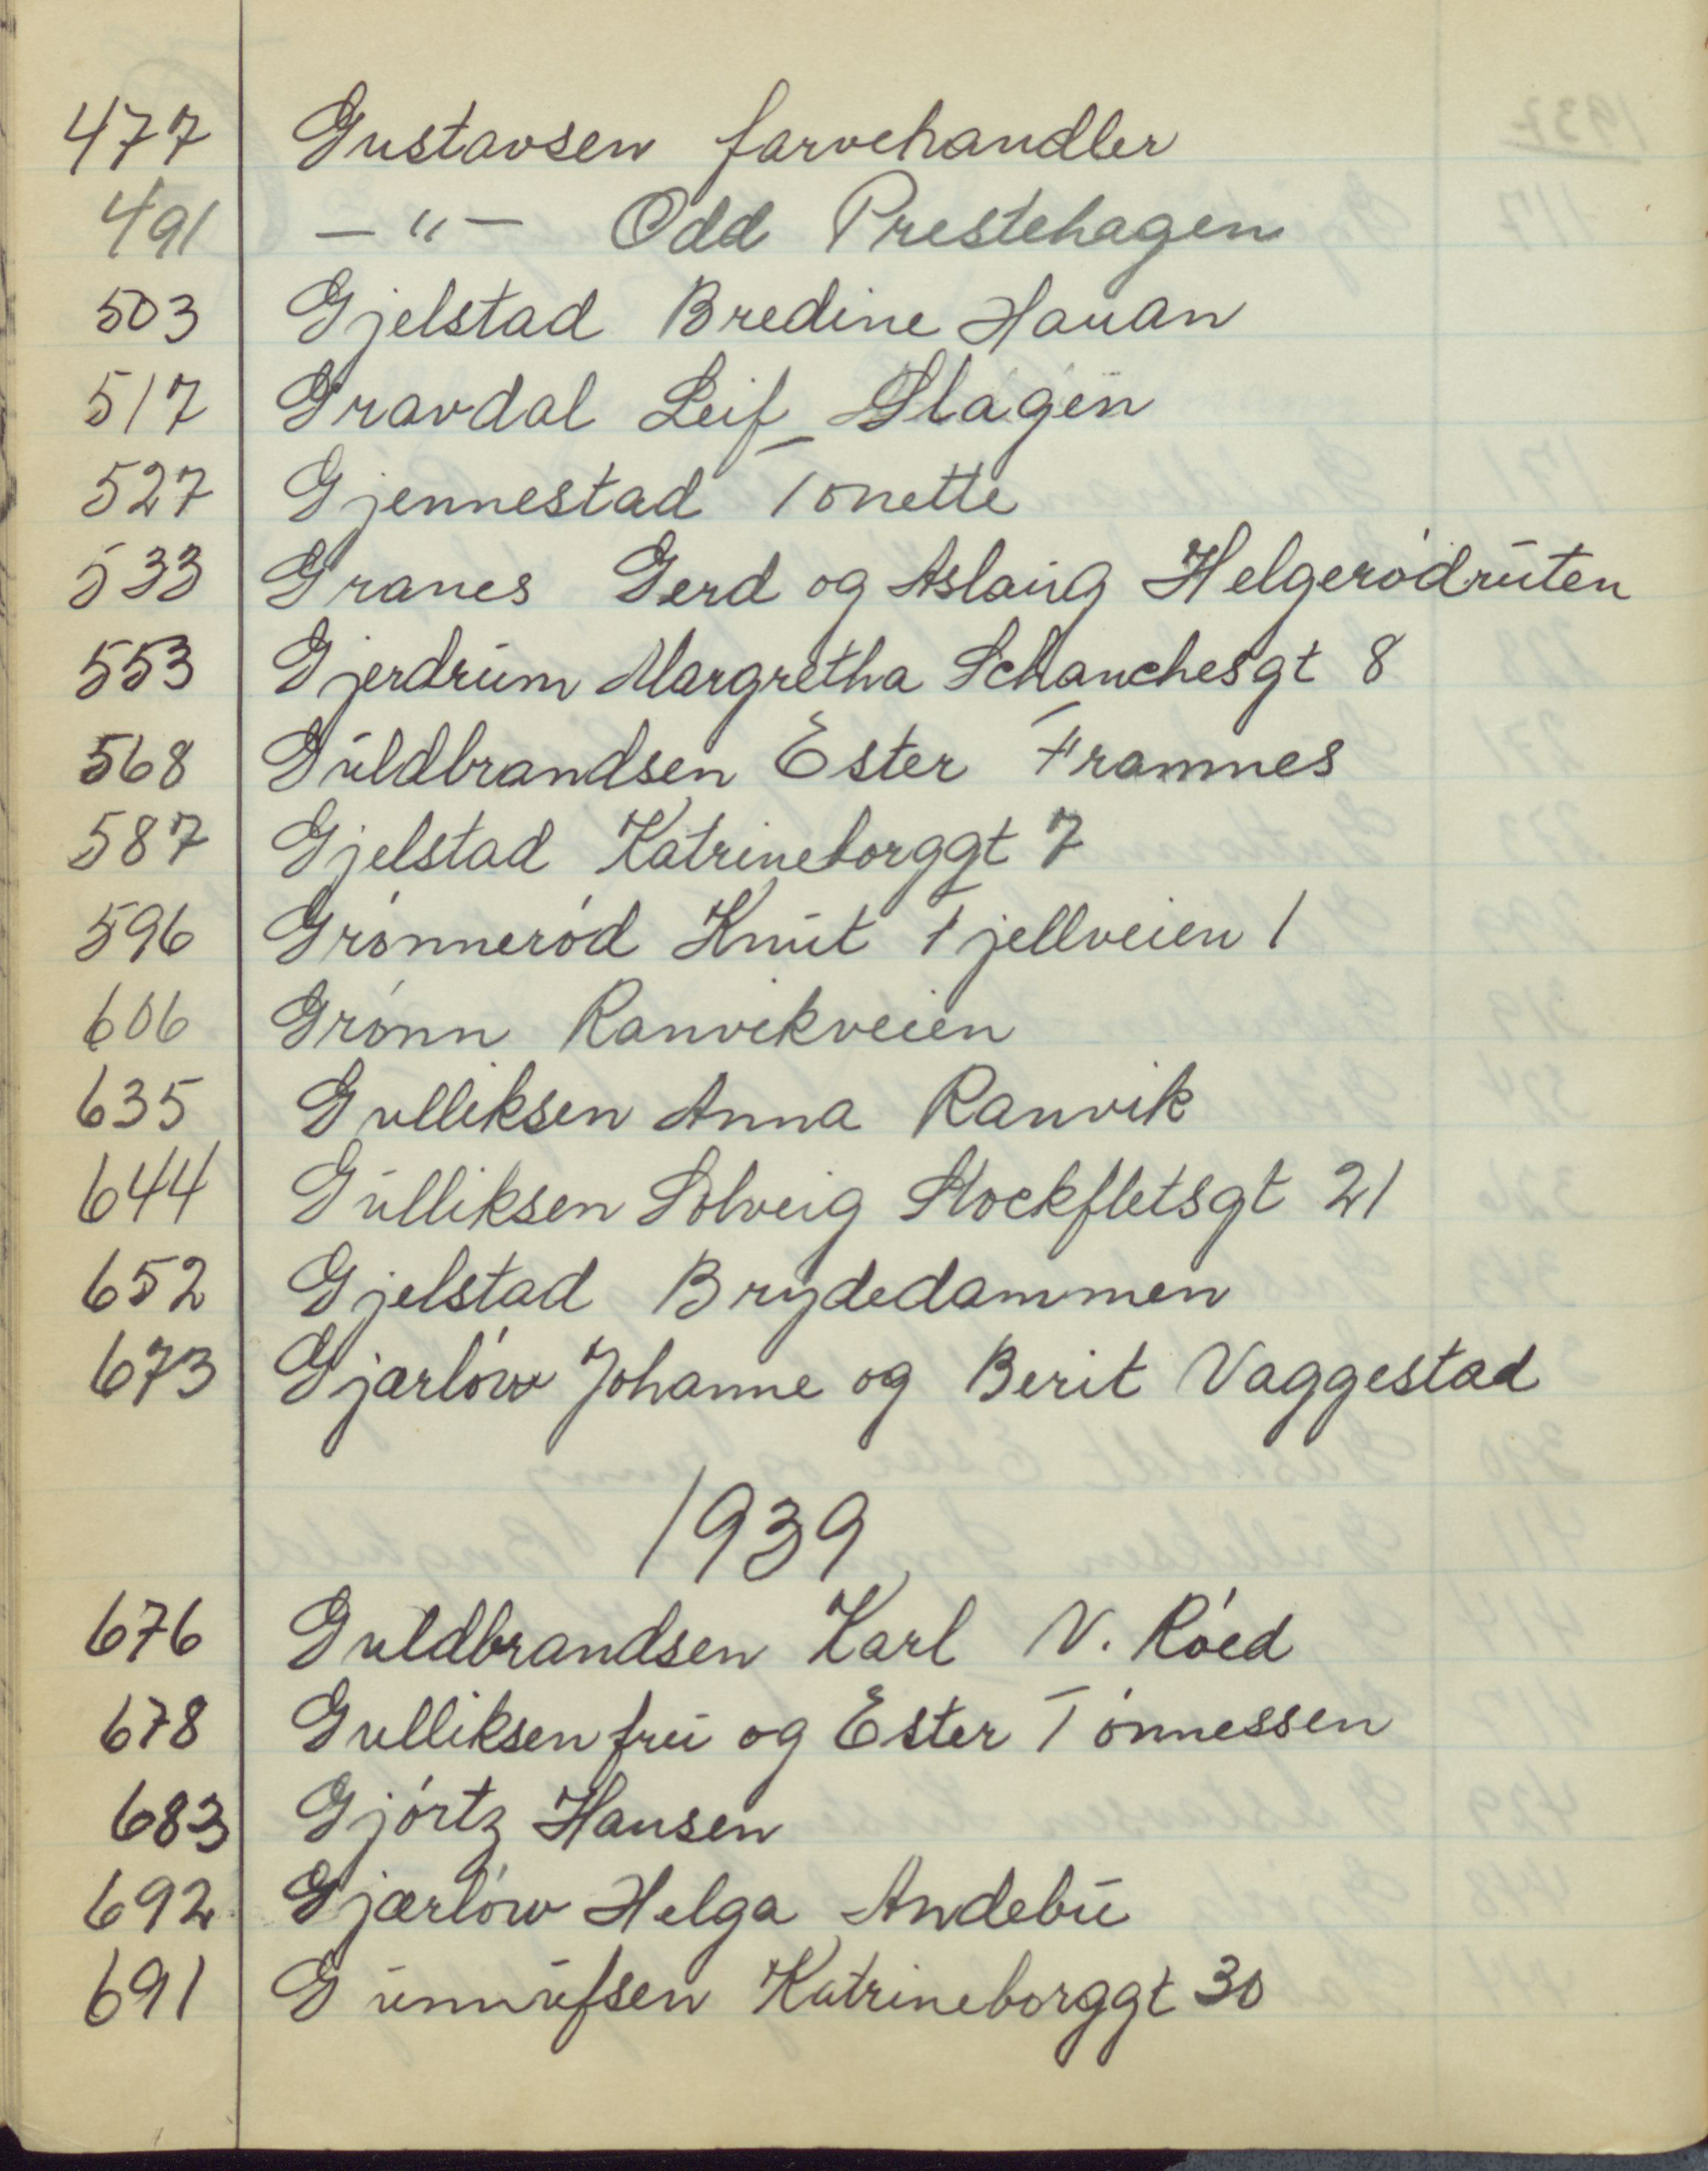 477 Gustavsen farvehandler
491 — " — Odd Prestehagen
503 Gjelstad Bredine Hauan
517 Gravdal Leif Slagen
527 Gjennestad Tonette
533 Granes Gerd og Aslaug Helgerødruten
553 Gjerdrum Margretha Schanchesgt 8
568 Guldbrandsen Ester Framnes
587 Gjelstad Katrineborggt 7
596 Grønnerød Knut Fjellveien 1
606 Grønn Ranvikveien
635 Gulliksen Anna Ranvik
644 Gulliksen Solveig Stockfletsgt 21
652 Gjelstad Brydedammen
673 Gjærløw Johanne og Berit Vaggestad
1939
676 Guldbrandsen Karl N. Røed
678 Gulliksen fru og Ester Tønnessen
683 Gjørtz Hansen
692 Gjærløw Helga Andebu
691 Gunnufsen Katrineborggt 30